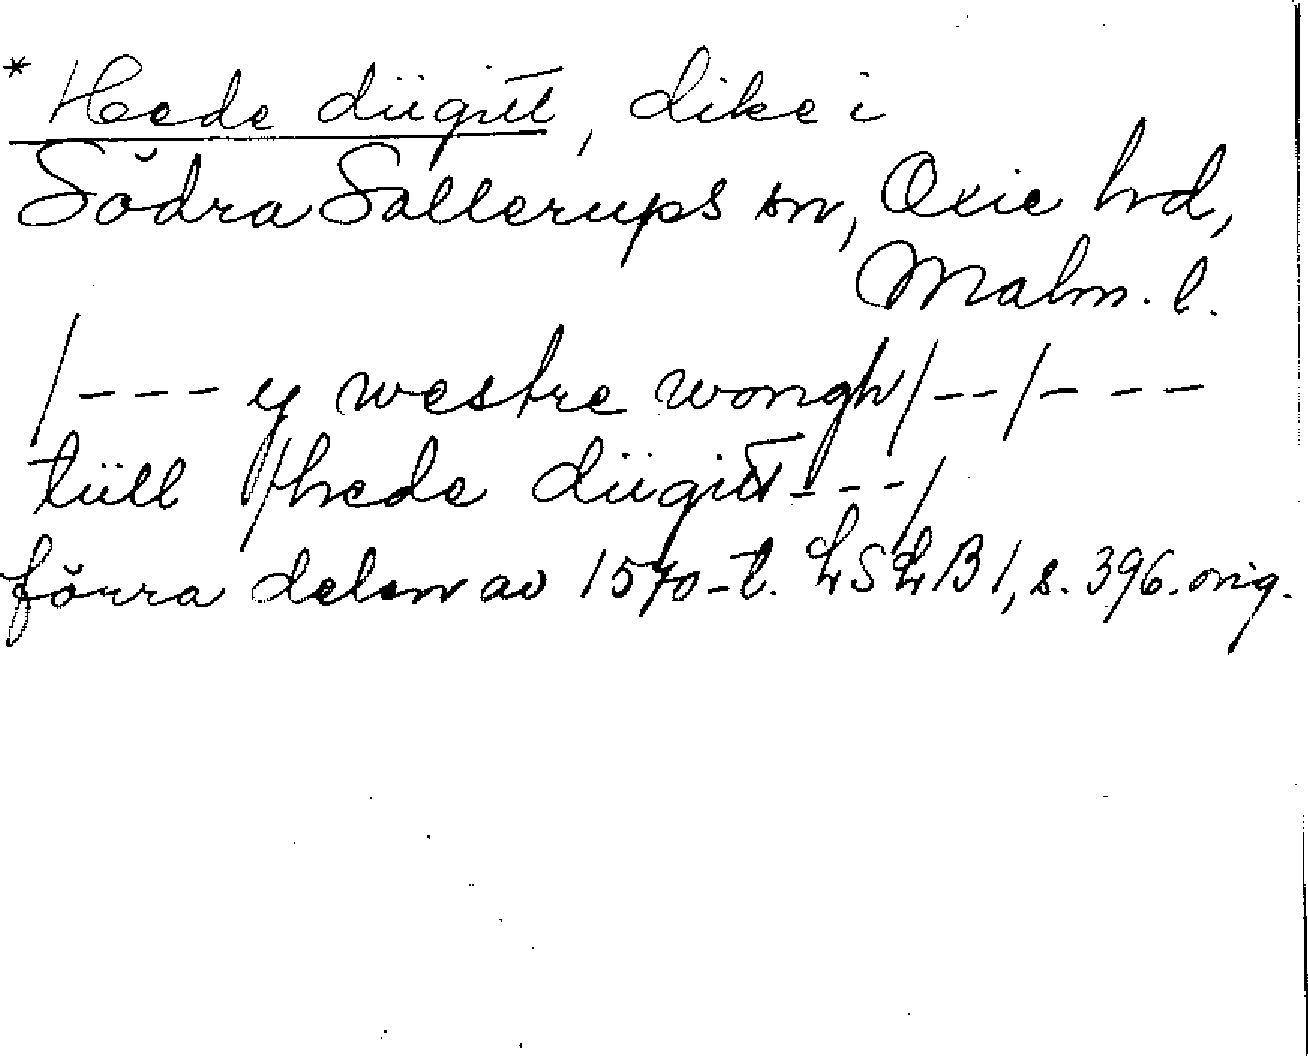 * Hede düigitt, dike i
Södra Sallerups sn, Oxie hd,
Malm. l.
/--- y westre wongh/--/---
tüll /hede düigitt---/
förra delen av 1570-t. LSLB 1, s. 396. orig.